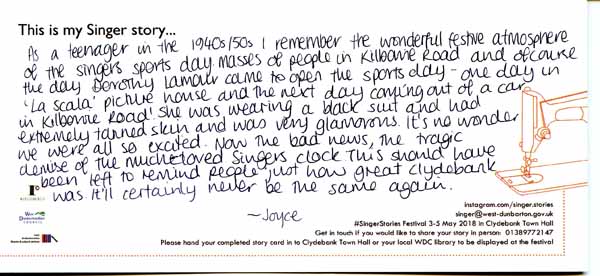 This is my Singer story...
As a teenager in the 1940s/50s I remember the wonderful festive atmosphere
of the singers sports day. Masses of people in Kilbowie Road and ofcourse
the day Dorothy Lamour came to open the sports day - one day in
'La scala' picture house and the next day coming out of a car
in Kilbowie Road! she was wearing a black suit and had
extremely tanned skin and was very glamorous. It's no wonder
we were all so excited. Now the bad news, the tragic
demise of the much loved Singers clock This should have
been left to remind people just how great Clydebank
was. It'll certainly never be the same again.
~Joyce
West
Dunbartonshire
COUNCIL
instagram.com/singer.stories
singer@west-dunbarton.gov.uk
#SingerStories Festival 3-5 May 2018 in Clydebank Town Hall
Get in touch if you would like to share your story in person: 01389772147
Please hand your completed story card in to Clydebank Town Hall or your local WDC library to be displayed at the festival